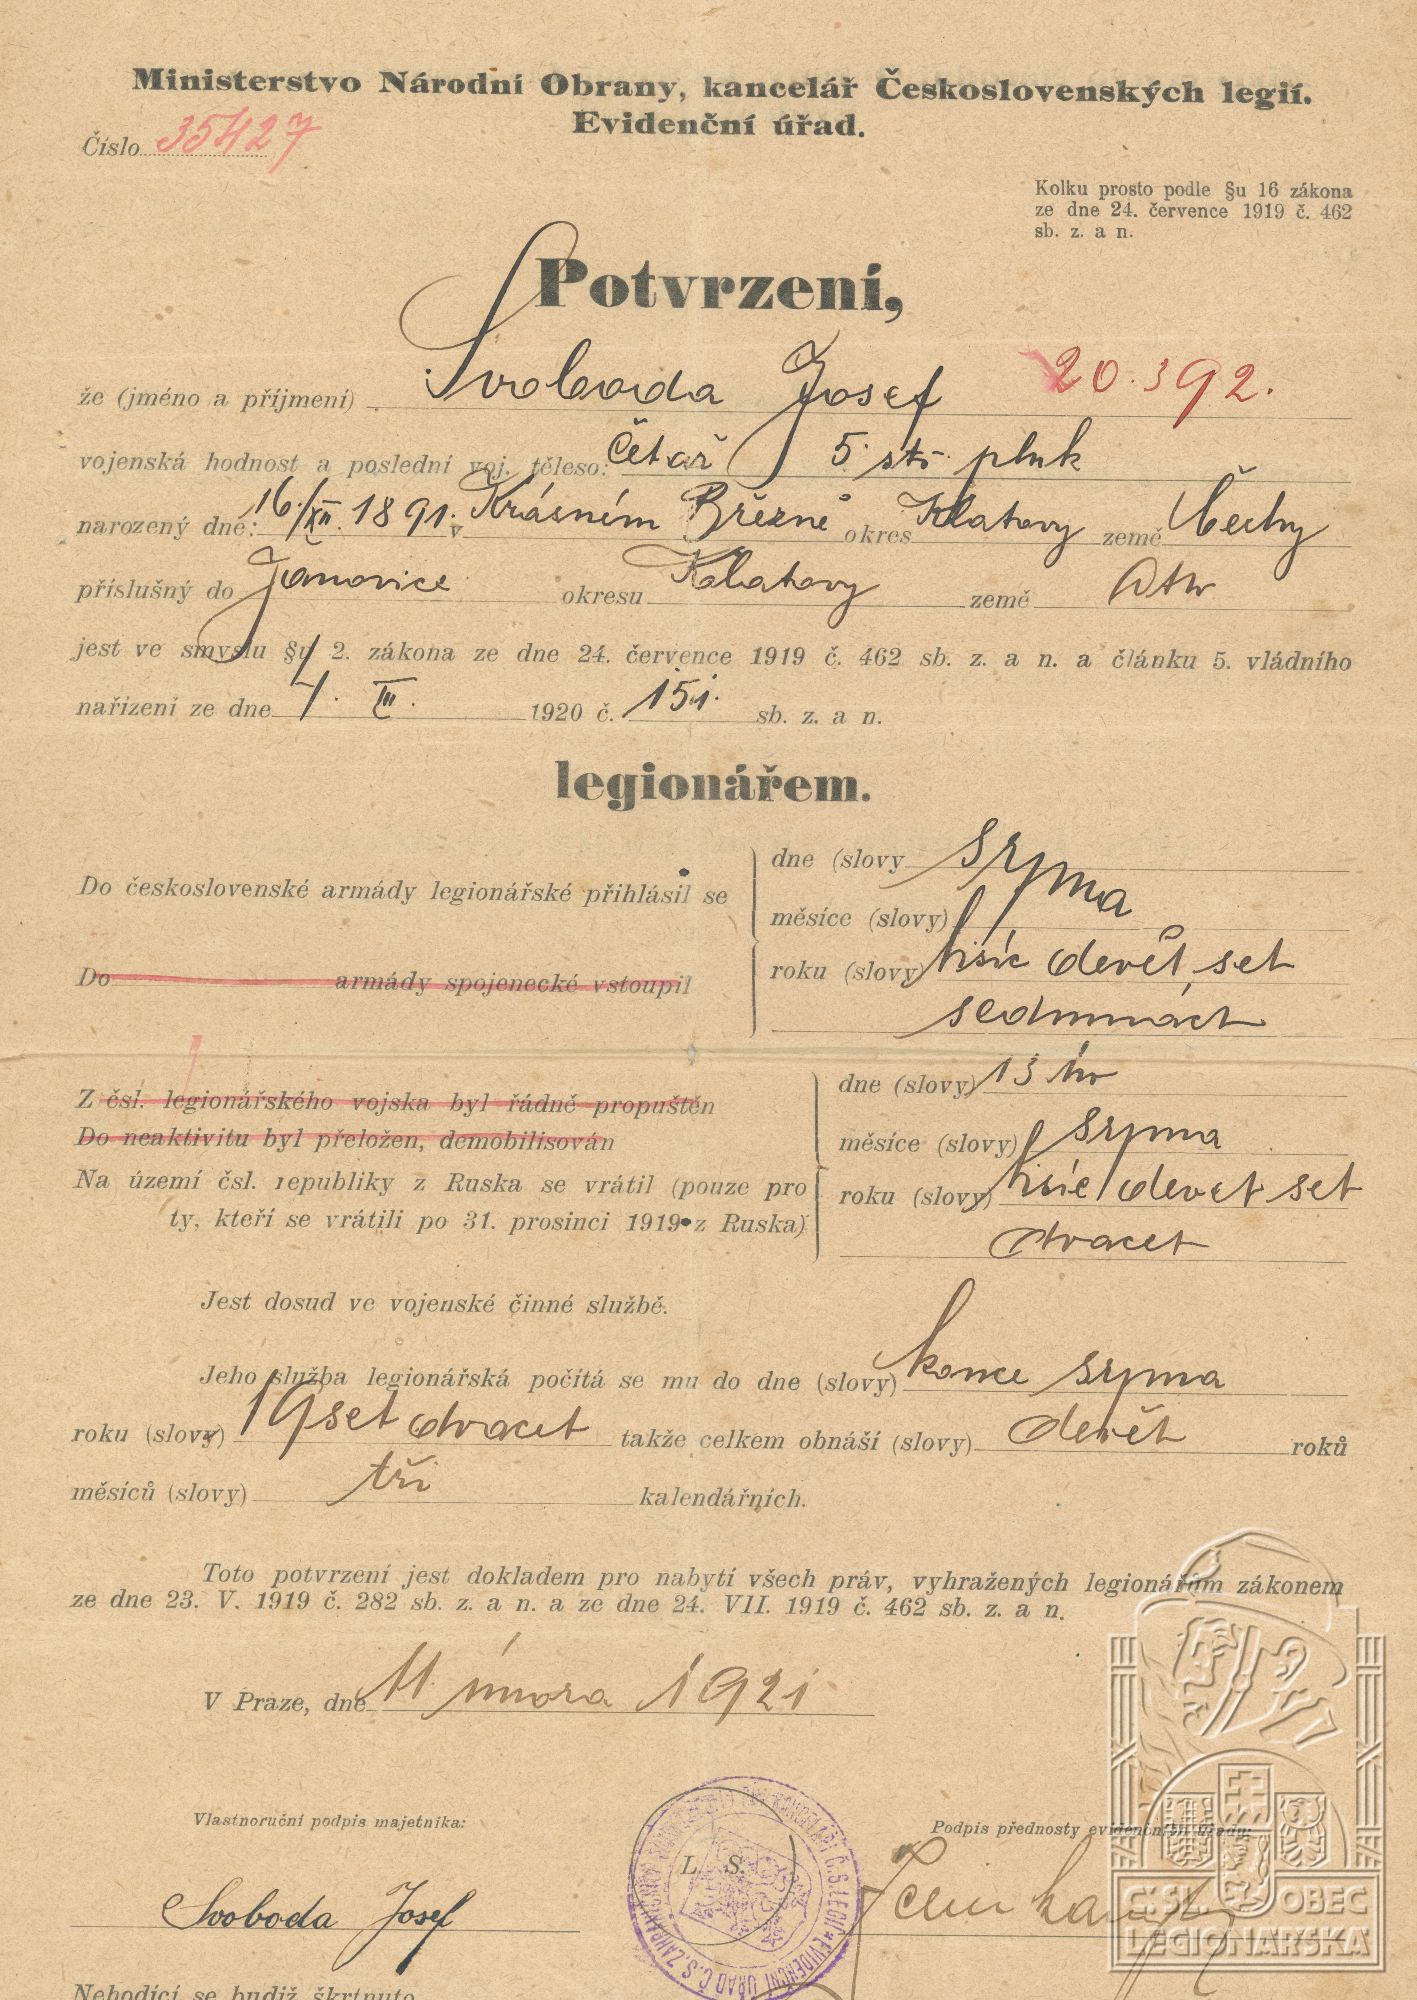 Ministerstvo Národní Obrany, kancelář Československých legií.
Evidenční úřad.
Číslo 35427
Kolku prosto podle §u 16 zákona
ze dne 24. července 1919 č. 462
sb. z. a n.
Potvrzení,
že (jméno a příjmení) Svoboda Josef 20.392.
vojenská hodnost a poslední voj. těleso: četař 5. stř. pluk
narozený dne: 16./XII. 1891. v Krásném Březně okres Klatovy země Čechy
příslušný do Janovice okresu Klatovy země
jest ve smyslu §u 2. zákona ze dne 24. července 1919 č. 462 sb. z. a n. a článku 5. vládního
nařízení ze dne 4. III. 1920 č. 151. sb. z. a n.
legionářem.
Do československé armády legionářské přihlásil se
Do armády spojenecké vstoupil
dne (slovy
srpna
měsíce (slovy)
roku (slovy) tisíc devět set
sedmnáct
Z čsl. legionářského vojska byl řádně propuštěn
Do neaktivitu byl přeložen, demobilisován
Na území čsl. republiky z Ruska se vrátil (pouze pro
ty, kteří se vrátili po 31. prosinci 1919 z Ruska)
dne (slovy) 13
měsíce (slovy) srpna
roku (slovy) tisíc devět set
dvacet
Jest dosud ve vojenské činné službě.
Jeho služba legionářská počítá se mu do dne (slovy) konce srpna
roku (slovy) 19set dvacet takže celkem obnáší (slovy) devět roků
měsíců (slovy) tři kalendářních.
Toto potvrzení jest dokladem pro nabytí všech práv, vyhražených legionářům zákonem
ze dne 23. V. 1919 č. 282 sb. z. a n. a ze dne 24. VII. 1919 č. 462 sb. z. a n.
V Praze, dne 11 února 1921
Vlastnoruční podpis majetníka:
Podpis přednosty evidenčního úřadu:
L. S.
EVIDENČNÍ ÚŘAD Č.S.
Svoboda Josef
Č.SL. OBEC
LEGIONÁŘSKÁ
Nehodící se budiž škrtnuto